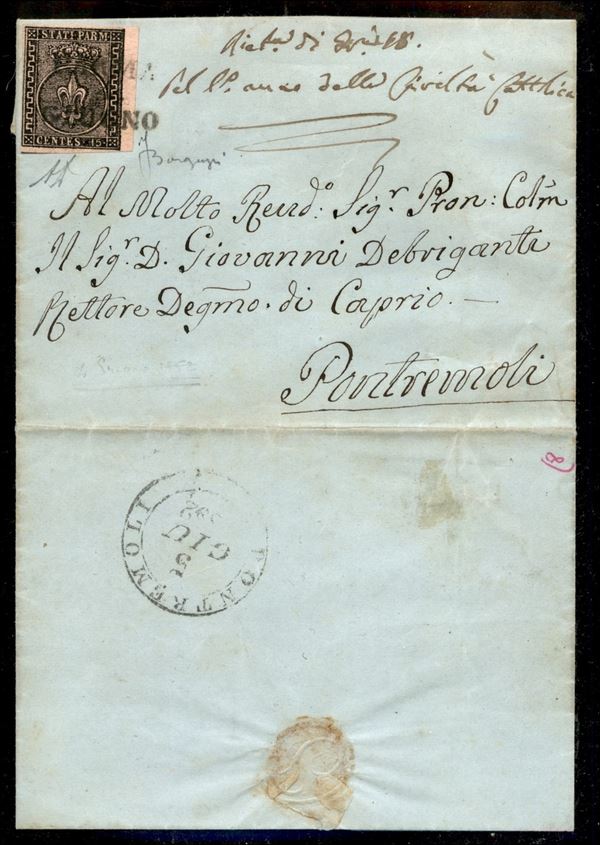 STATI PARM.
CENTES. 15
NO
di
Pel anno della Civiltà Cattolica
Al Molto Revd.º Sigr. Pron: Colm̃
Il Sigr. D. Giovanni Debriganti
Rettore Degm̃o. di Caprio. —
Pontremoli
8
PONTREMOLI
5
GIU